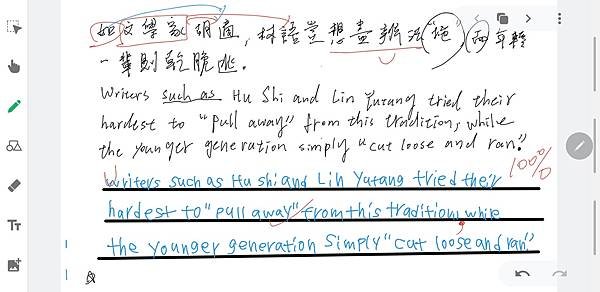 如文學家胡適,林語堂想盡辦法"拖",而年輕
一輩則乾脆逃。
Writers such as Hu Shi and Lin Yutang tried their
hardest to "pull away" from this tradition, while
the younger generation simply "cut loose and ran."
100%
Writers such as Hu shi and Lin Yutang tried their
hardest to "pull away" from this tradition, while
the younger generation simply "cut loose and ran."